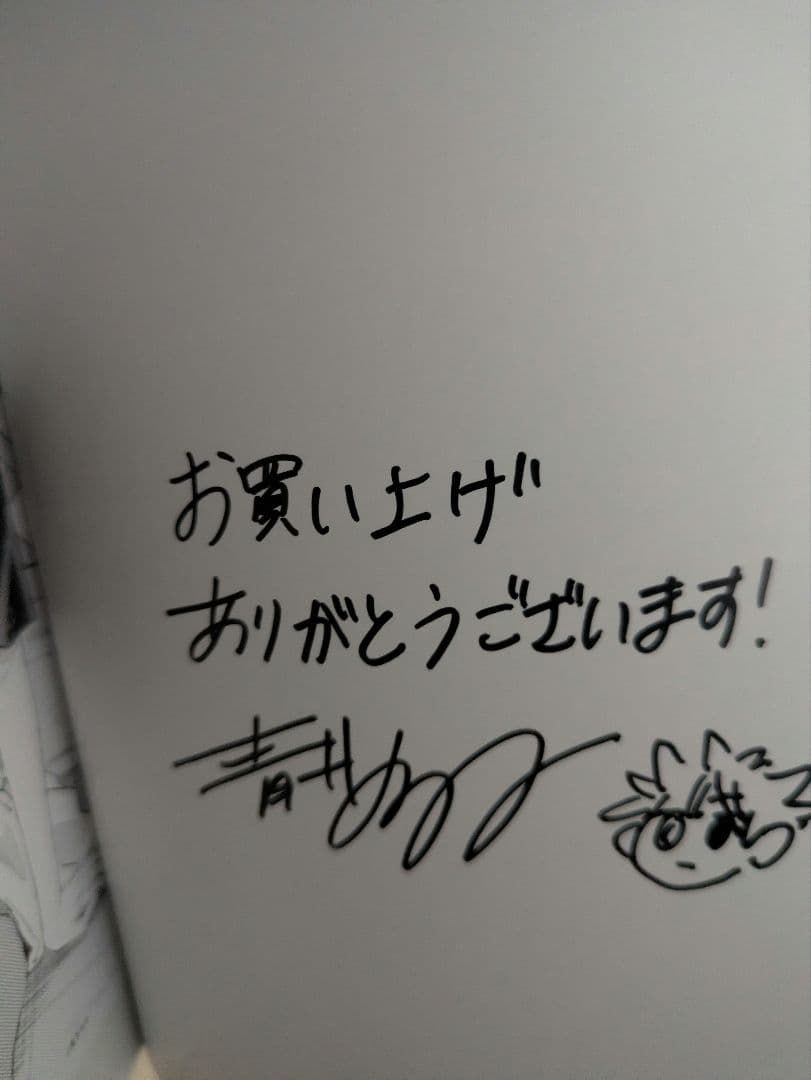 お買い上げ
ありがとうございます!
青井